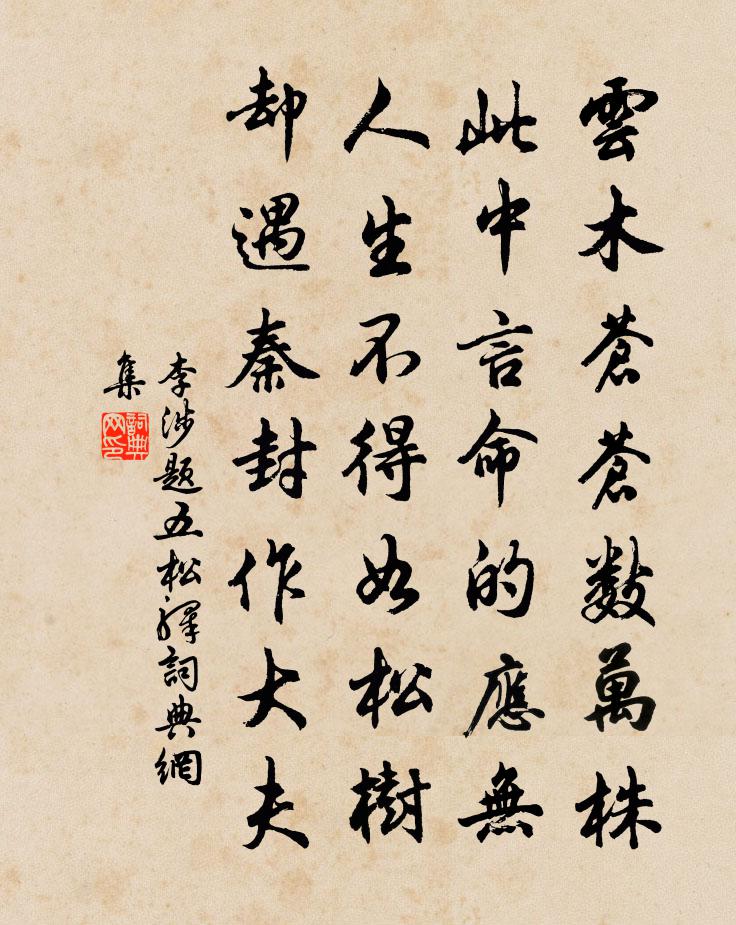 雲木蒼蒼數萬株
此中言命的應無
人生不得如松樹
却遇秦封作大夫
李涉題五松驛詞典網
集
詞典
网印